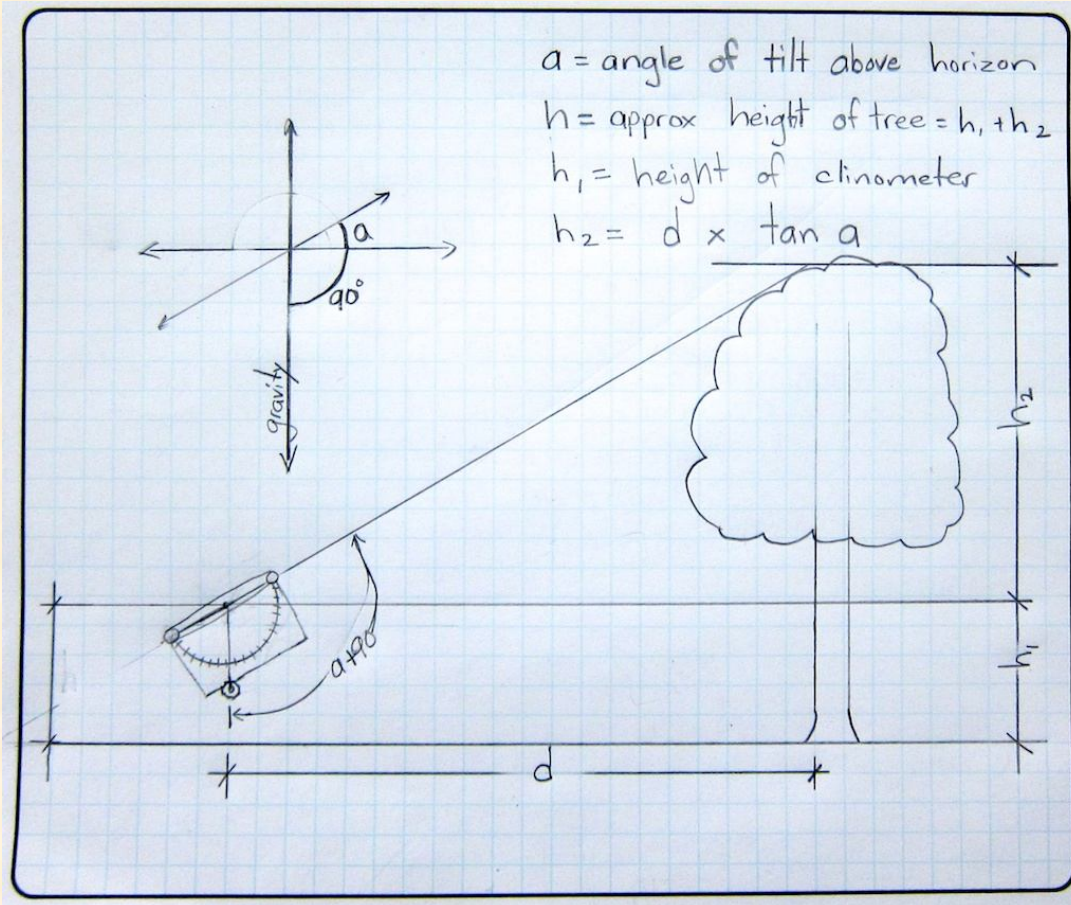 a = angle of tilt above horizon
h = approx height of tree = h₁ + h₂
h₁ = height of clinometer
h₂ = d × tan a
a
90°
gravity
h₂
a+90
h₁
d